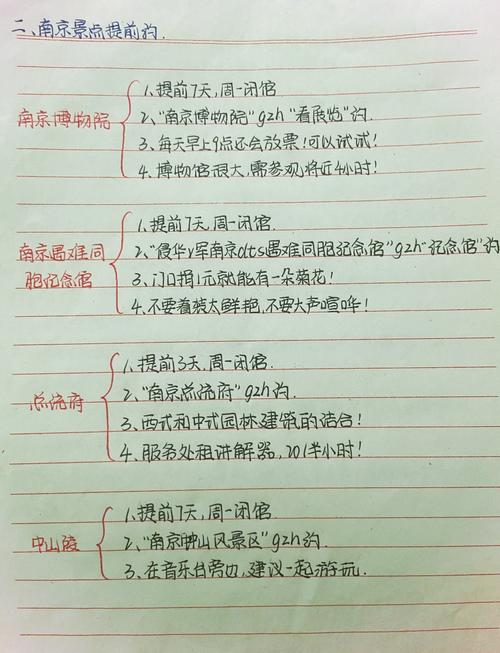 二、南京景点提前约.
南京博物院
1、提前7天,周一闭馆
2、"南京博物院"gzh"看展览"约
3、每天早上9点还会放票!可以试试!
4、博物馆很大,需参观将近4小时!
南京遇难同
胞纪念馆
1、提前7天,周一闭馆.
2、"侵华r军南京dts遇难同胞纪念馆"gzh"纪念馆"约
3、门口捐1元就能有一朵菊花!
4、不要着装太鲜艳,不要大声喧哗!
总统府
1、提前3天,周一闭馆.
2、"南京总统府"gzh约.
3、西式和中式园林建筑的结合!
4、服务处租讲解器,201半小时!
中山陵
1、提前7天,周一闭馆
2、"南京钟山风景区"gzh约.
3、在音乐台旁边,建议一起游玩.